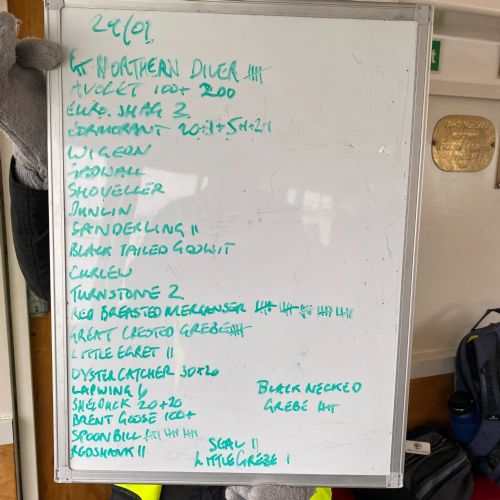 24/01.
GT NORTHERN DIVER 卌
AVOCET 100+ 200
EURO. SHAG 2
CORMORANT
WIGEON
GADWALL
SHOVELLER
DUNLIN
SANDERLING II
BLACK TAILED GODWIT
CURLEW
TURNSTONE 2
RED BREASTED MERGANSER 卌 卌 卌 卌 卌
GREAT CRESTED GREBE 卌
LITTLE EGRET II
OYSTER CATCHER 30+20
LAPWING 6
SHELDUCK 20+20
BRENT GOOSE 100+
SPOONBILL 卌 卌 卌
REDSHANK II
BLACK NECKED
GREBE 卌
SEAL II
LITTLE GREBE I